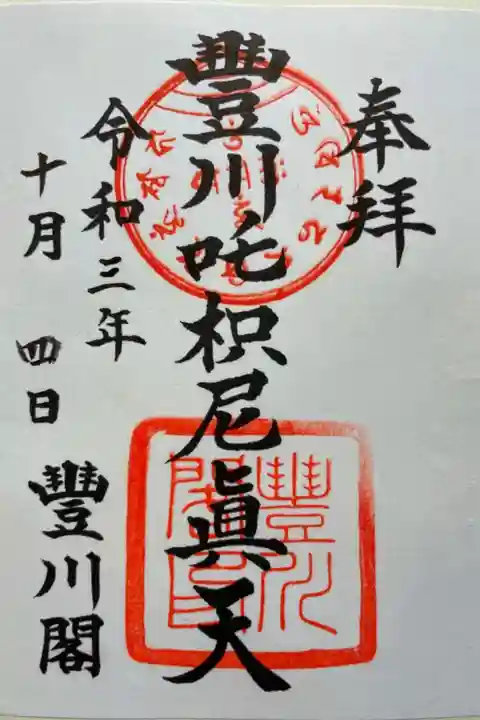 奉拝
豐川吒枳尼眞天
令和三年
十月 四日
豐川閣
豐川
閣印